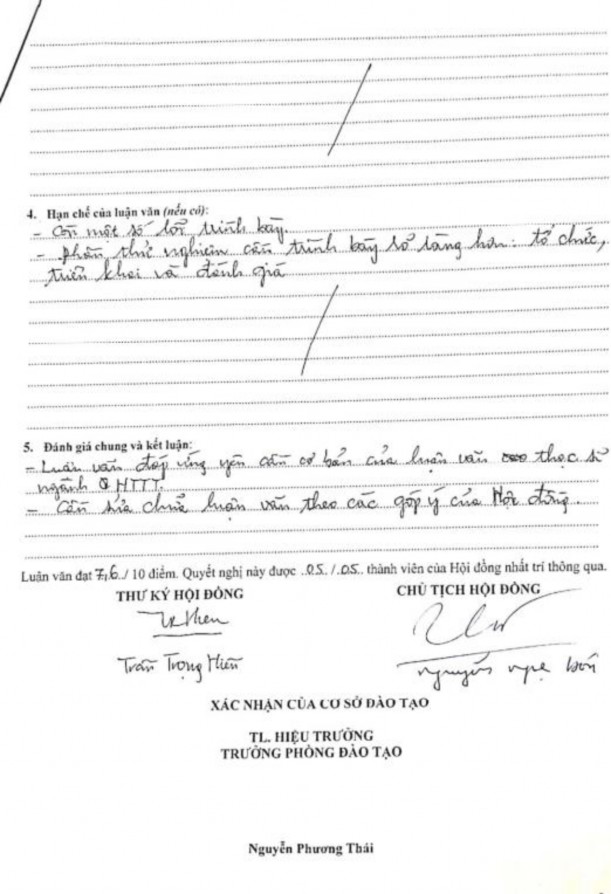 4. Hạn chế của luận văn (nếu có):
- Còn một số lỗi trình bày.
- phần thực nghiệm cần trình bày rõ ràng hơn: tổ chức,
triển khai và đánh giá
5. Đánh giá chung và kết luận:
- Luận văn đáp ứng yêu cầu cơ bản của luận văn thạc sĩ
ngành HTTT.
- Cần sửa chữa luận văn theo các góp ý của Hội đồng.
Luận văn đạt 7,6 / 10 điểm. Quyết nghị này được 05 / 05 thành viên của Hội đồng nhất trí thông qua.
THƯ KÝ HỘI ĐỒNG
CHỦ TỊCH HỘI ĐỒNG
Trần Trọng Hiếu
Nguyễn Ngọc
XÁC NHẬN CỦA CƠ SỞ ĐÀO TẠO
TL. HIỆU TRƯỞNG
TRƯỞNG PHÒNG ĐÀO TẠO
Nguyễn Phương Thái